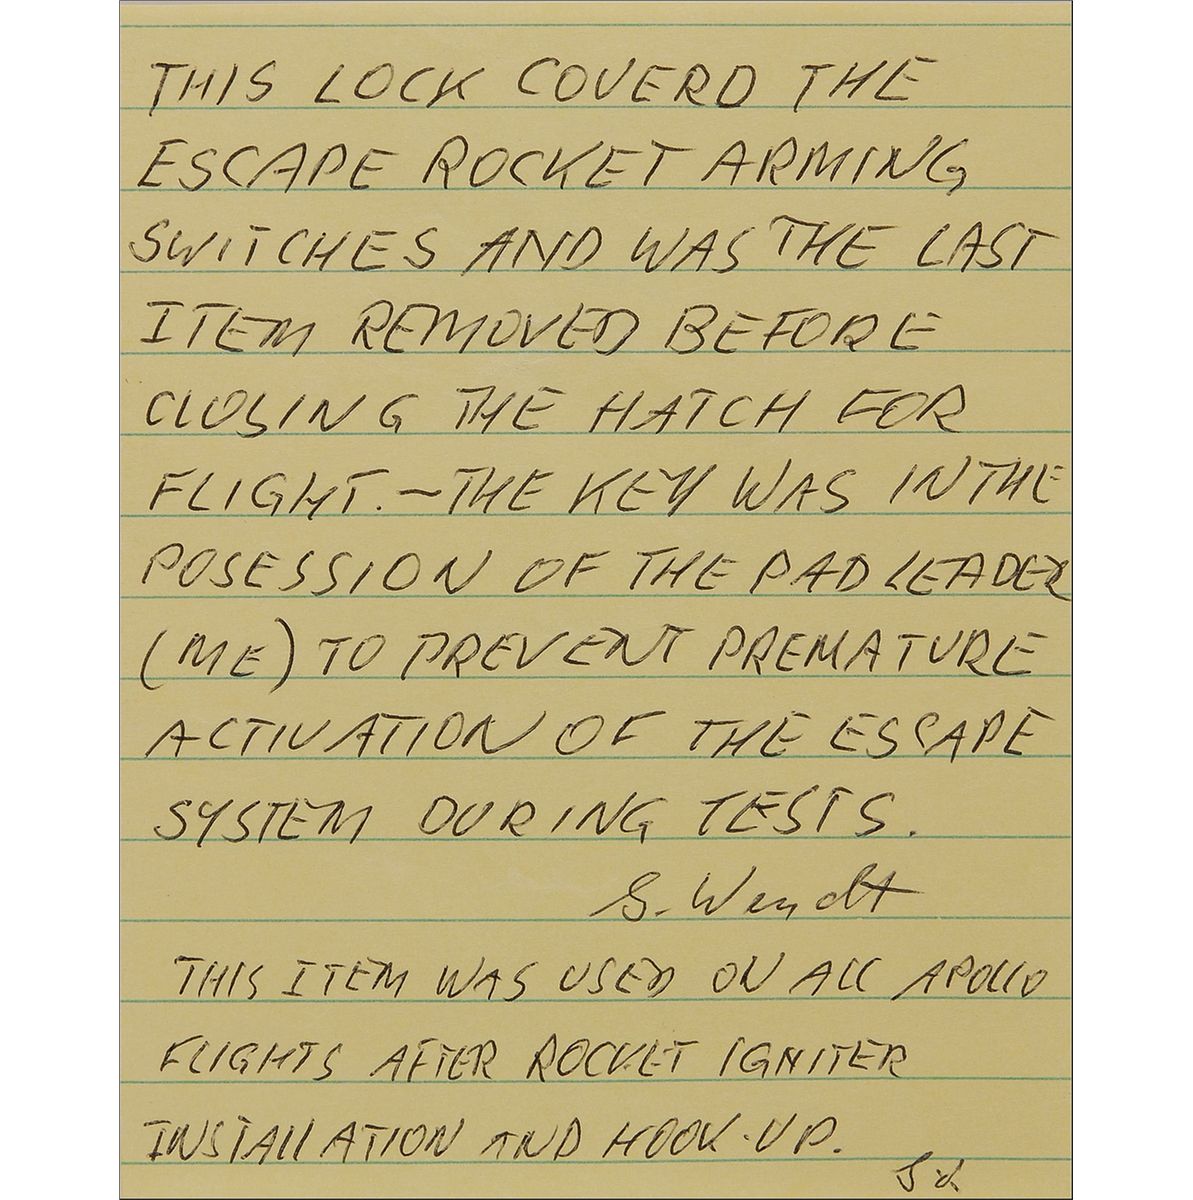 THIS LOCK COVERD THE
ESCAPE ROCKET ARMING
SWITCHES AND WAS THE LAST
ITEM REMOVED BEFORE
CLOSING THE HATCH FOR
FLIGHT. – THE KEY WAS IN THE
POSESSION OF THE PAD LEADER
(ME) TO PREVENT PREMATURE
ACTIVATION OF THE ESCAPE
SYSTEM DURING TESTS.
G. Wendt
THIS ITEM WAS USED ON ALL APOLLO
FLIGHTS AFTER ROCKET IGNITER
INSTALLATION AND HOOK-UP.